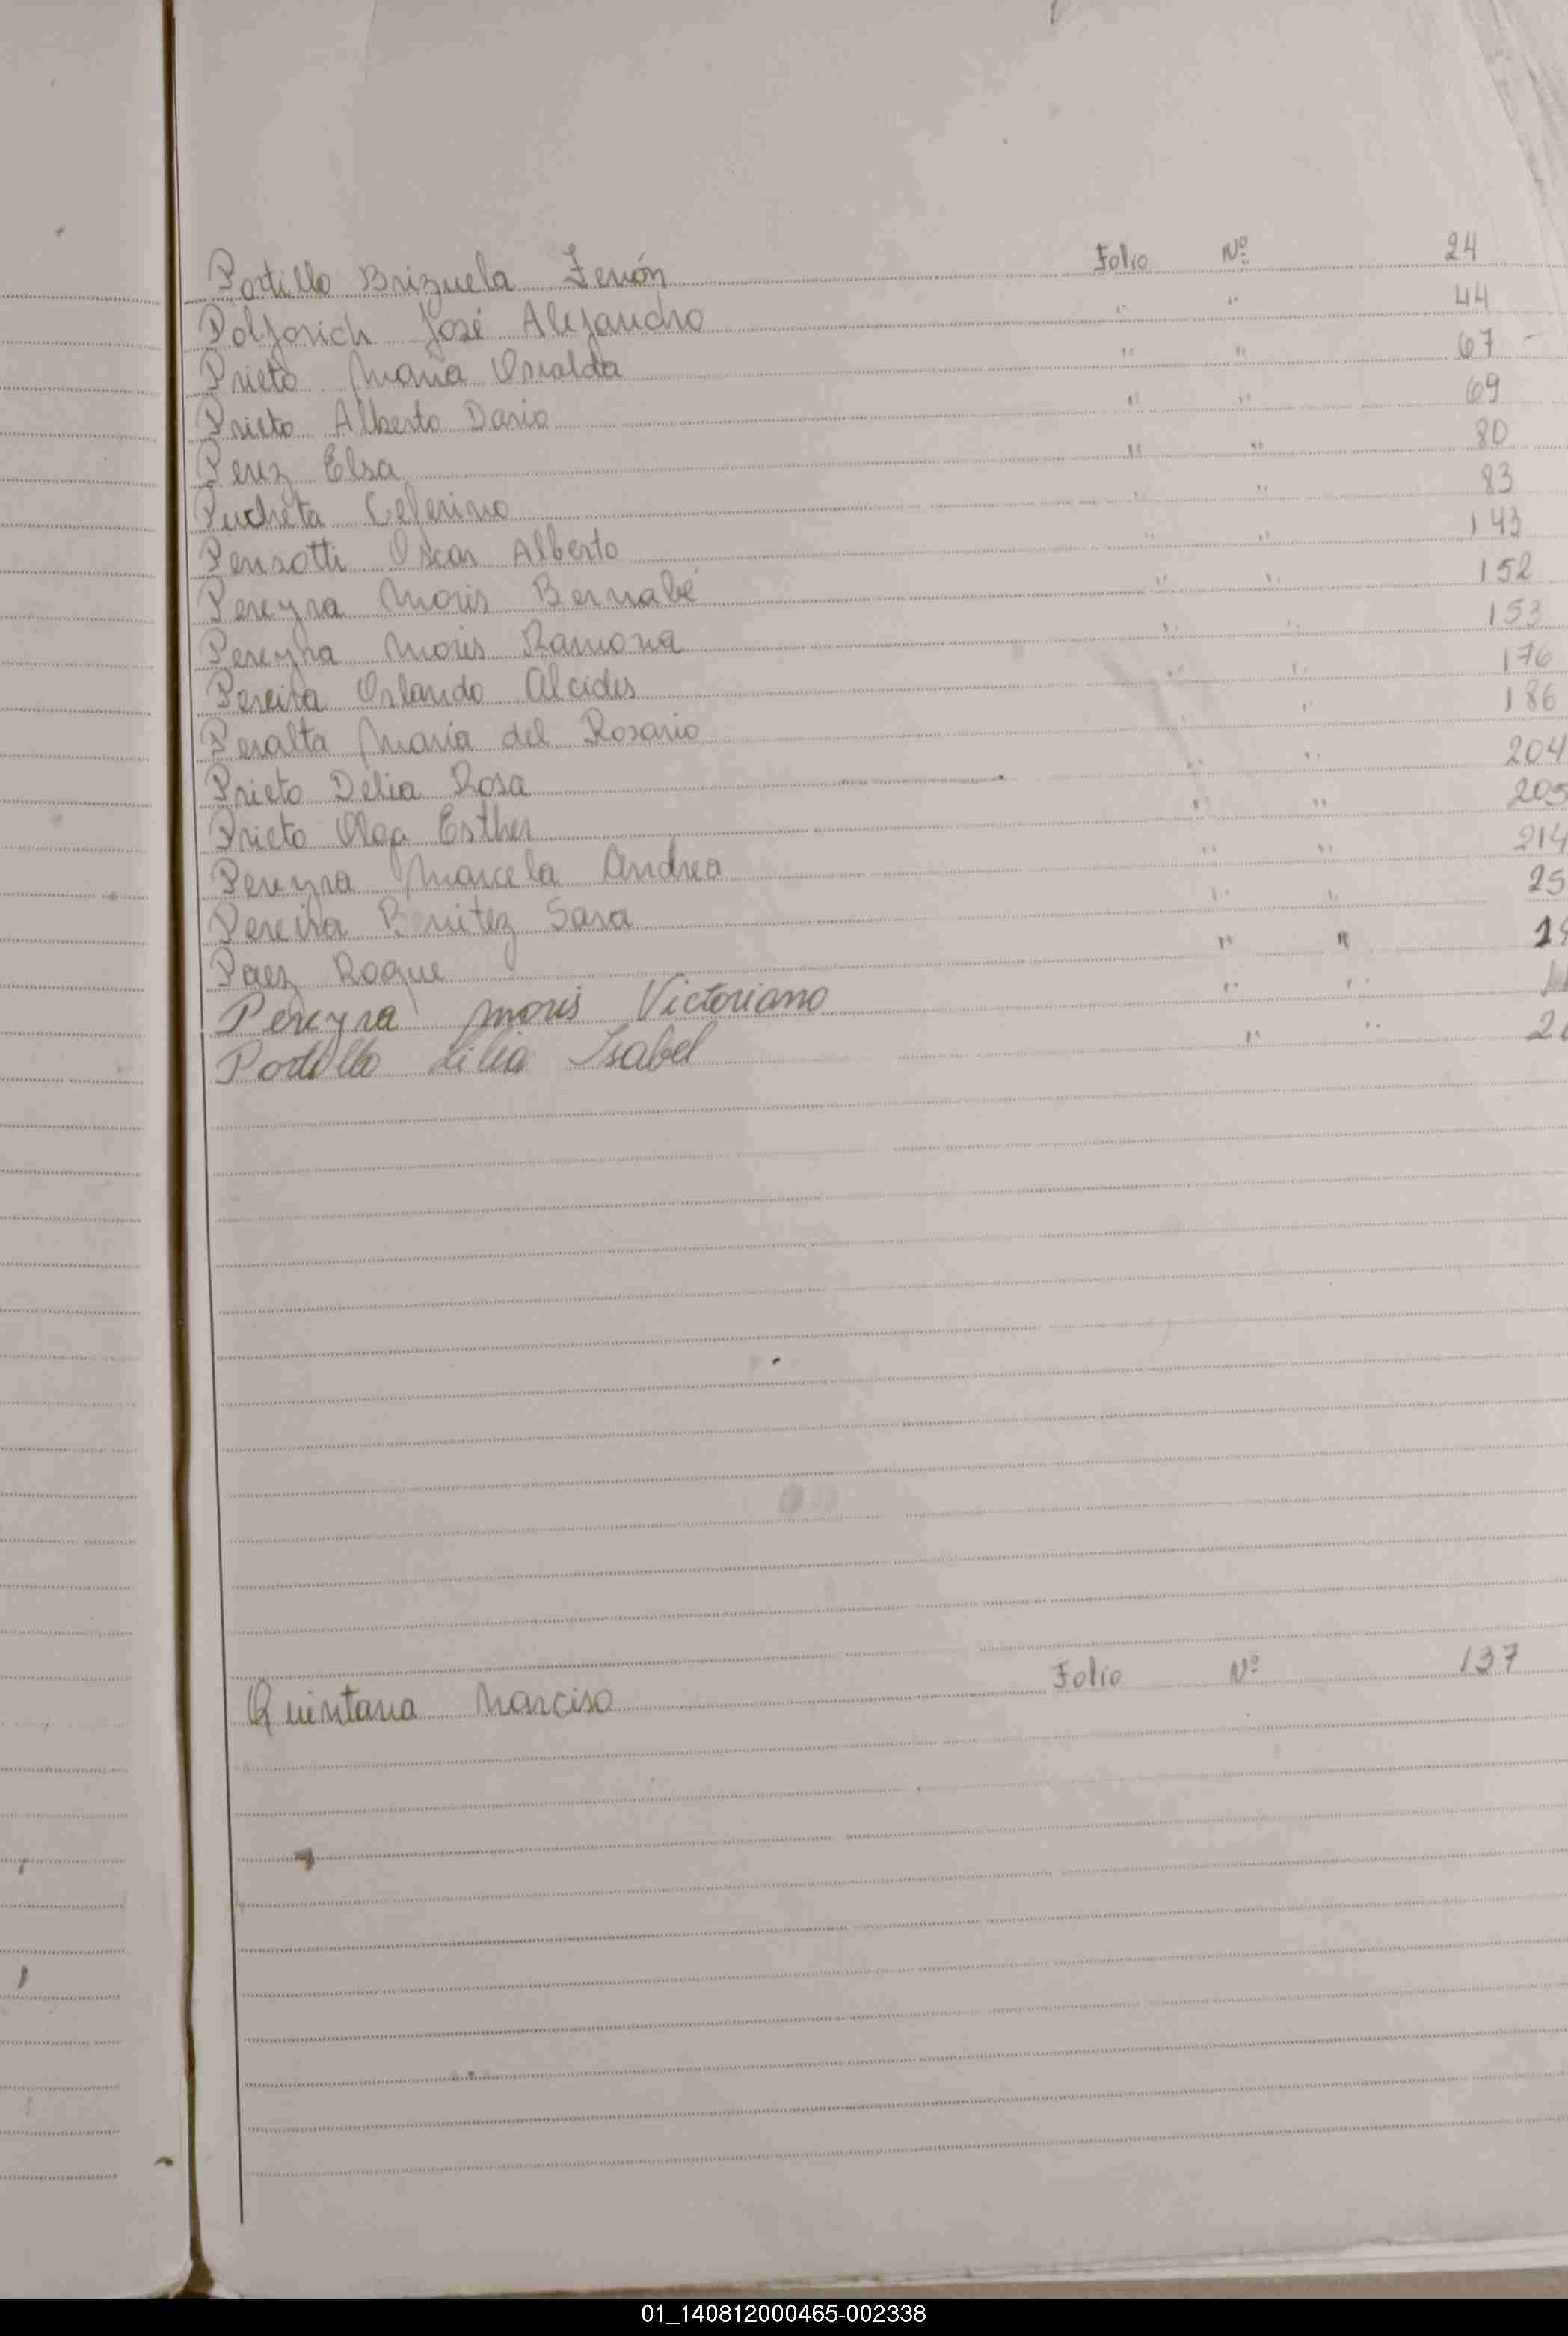 Portillo Brizuela Zenón Folio Nº 24
Poljorich José Alejandro " " 44
Prieto Maria Osvalda " " 67
Prieto Alberto Dario " " 69
Perez Elsa " " 80
Pucheta Ceferino " " 83
Penzotti Oscar Alberto " " 143
Pereyra Moris Bernabé " " 152
Pereyra Moris Ramona " " 153
Pereira Orlando Alcides " " 176
Peralta María del Rosario " " 186
Prieto Delia Rosa " " 204
Prieto Olga Esther " " 205
Pereyra Marcela Andrea " " 214
Pereira Benitez Sara " " 25
Paez Roque " "
Pereyra Moris Victoriano " "
Portillo Lilia Isabel " "
Quintana Narciso Folio Nº 137
01_140812000465-002338